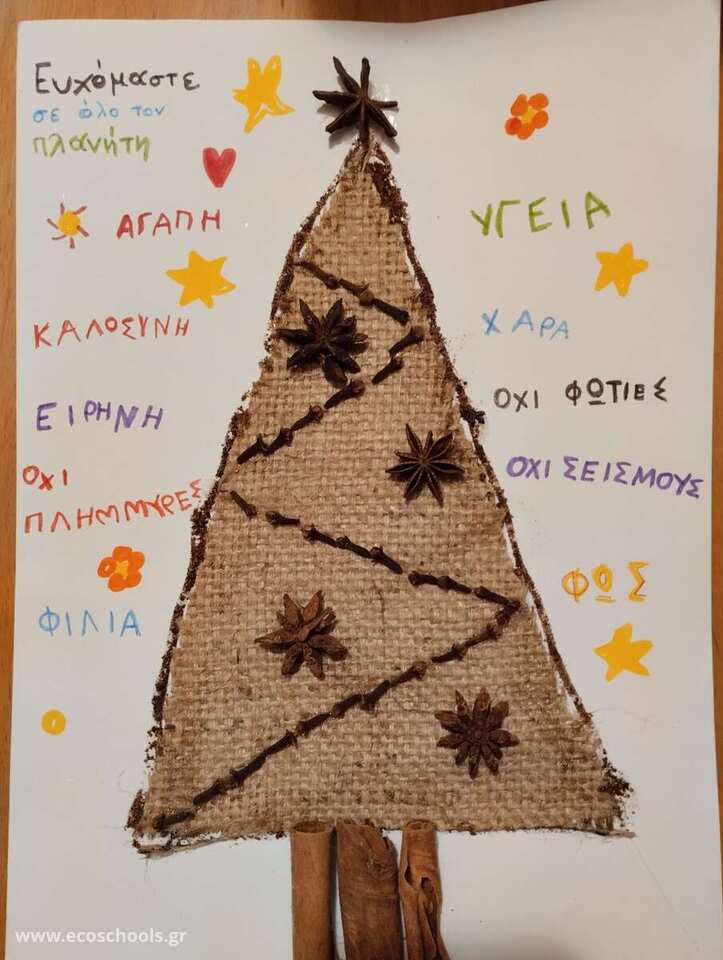 Ευχόμαστε
σε όλο τον
πλανήτη
ΑΓΑΠΗ
ΚΑΛΟΣΥΝΗ
ΕΙΡΗΝΗ
ΟΧΙ
ΠΛΗΜΜΥΡΕΣ
ΦΙΛΙΑ
ΥΓΕΙΑ
ΧΑΡΑ
ΟΧΙ ΦΩΤΙΕΣ
ΟΧΙ ΣΕΙΣΜΟΥΣ
ΦΩΣ
www.ecoschools.gr